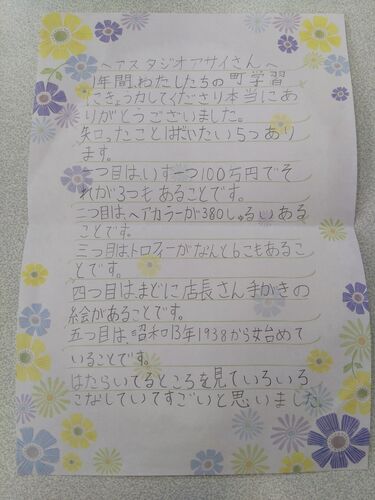 ヘアスタジオアサイさんへ
1年間、わたしたちの町学習
にきょう力してくださり本当にあ
りがとうございました。
知ったことはだいたい5つあり
ます。
一つ目は、いす一つ100万円でそ
れが3つもあることです。
二つ目は、ヘアカラーが380しゅるいある
ことです。
三つ目はトロフィーがなんと6こもあるこ
とです。
四つ目は、まどに店長さん手がきの
絵があることです。
五つ目は、昭和13年1938から始めて
いることです。
はたらいてるところを見ていろいろ
こなしていてすごいと思いました。